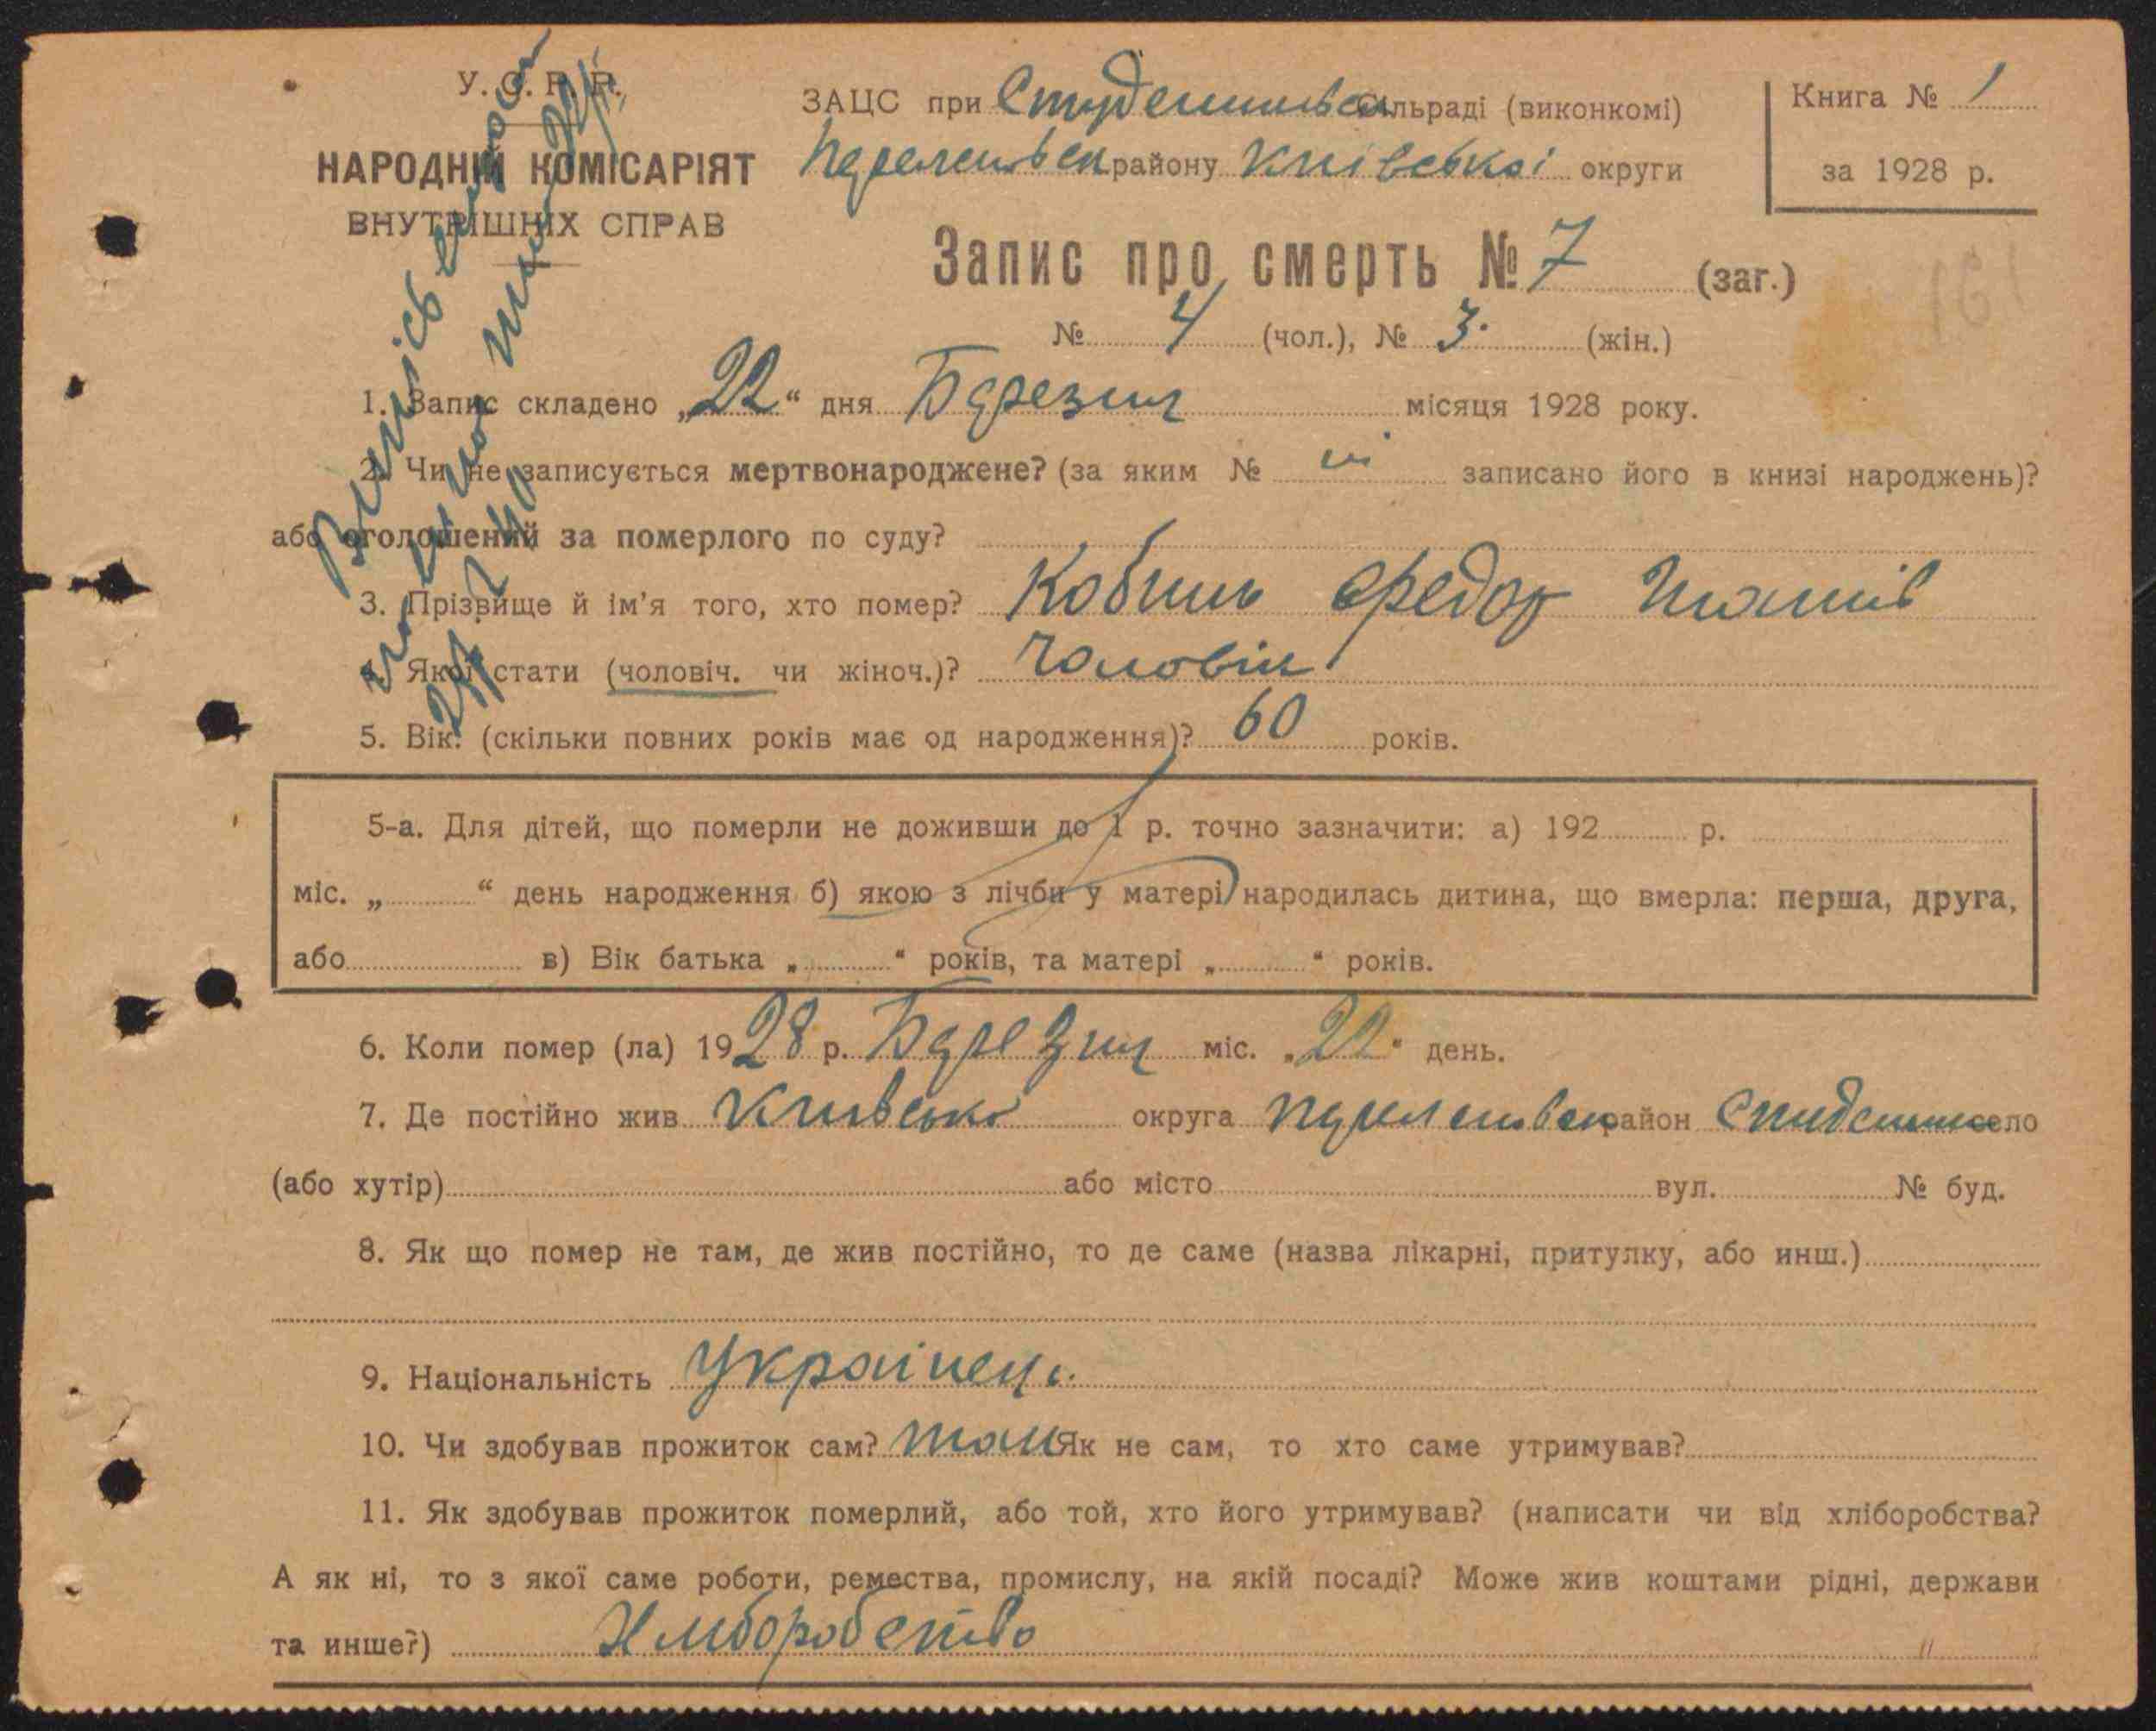 У. С. Р. Р.
НАРОДНІЙ КОМІСАРІЯТ
ВНУТРІШНІХ СПРАВ
ЗАЦС при Студениківск сільраді (виконкомі)
району Київської округи
Книга № 1
за 1928 р.
Запис про смерть № 7 (заг.)
№ 4 (чол.), № 3 (жін.)
1. Запис складено „22“ дня Березня місяця 1928 року.
2. Чи не записується мертвонароджене? (за яким № ні записано його в книзі народжень)?
або оголошений за померлого по суду?
3. Прізвище й ім’я того, хто помер? Федор
4. Якої стати (чоловіч. чи жіноч.)? Чоловік
5. Вік: (скільки повних років має од народження)? 60 років.
5-а. Для дітей, що померли не доживши до 1 р. точно зазначити: а) 192 р.
міс. „ “ день народження б) якою з лічби у матері народилась дитина, що вмерла: перша, друга,
або в) Вік батька „ “ років, та матері „ “ років.
6. Коли помер (ла) 1928 р. Березня міс. „22“ день.
7. Де постійно жив Київсько округа район село
(або хутір) або місто вул. № буд.
8. Як що помер не там, де жив постійно, то де саме (назва лікарні, притулку, або инш.)
9. Національність Українець.
10. Чи здобував прожиток сам? так Як не сам, то хто саме утримував?
11. Як здобував прожиток померлий, або той, хто його утримував? (написати чи від хліборобства?
А як ні, то з якої саме роботи, ремества, промислу, на якій посаді? Може жив коштами рідні, держави
та инше?) Хліборобство